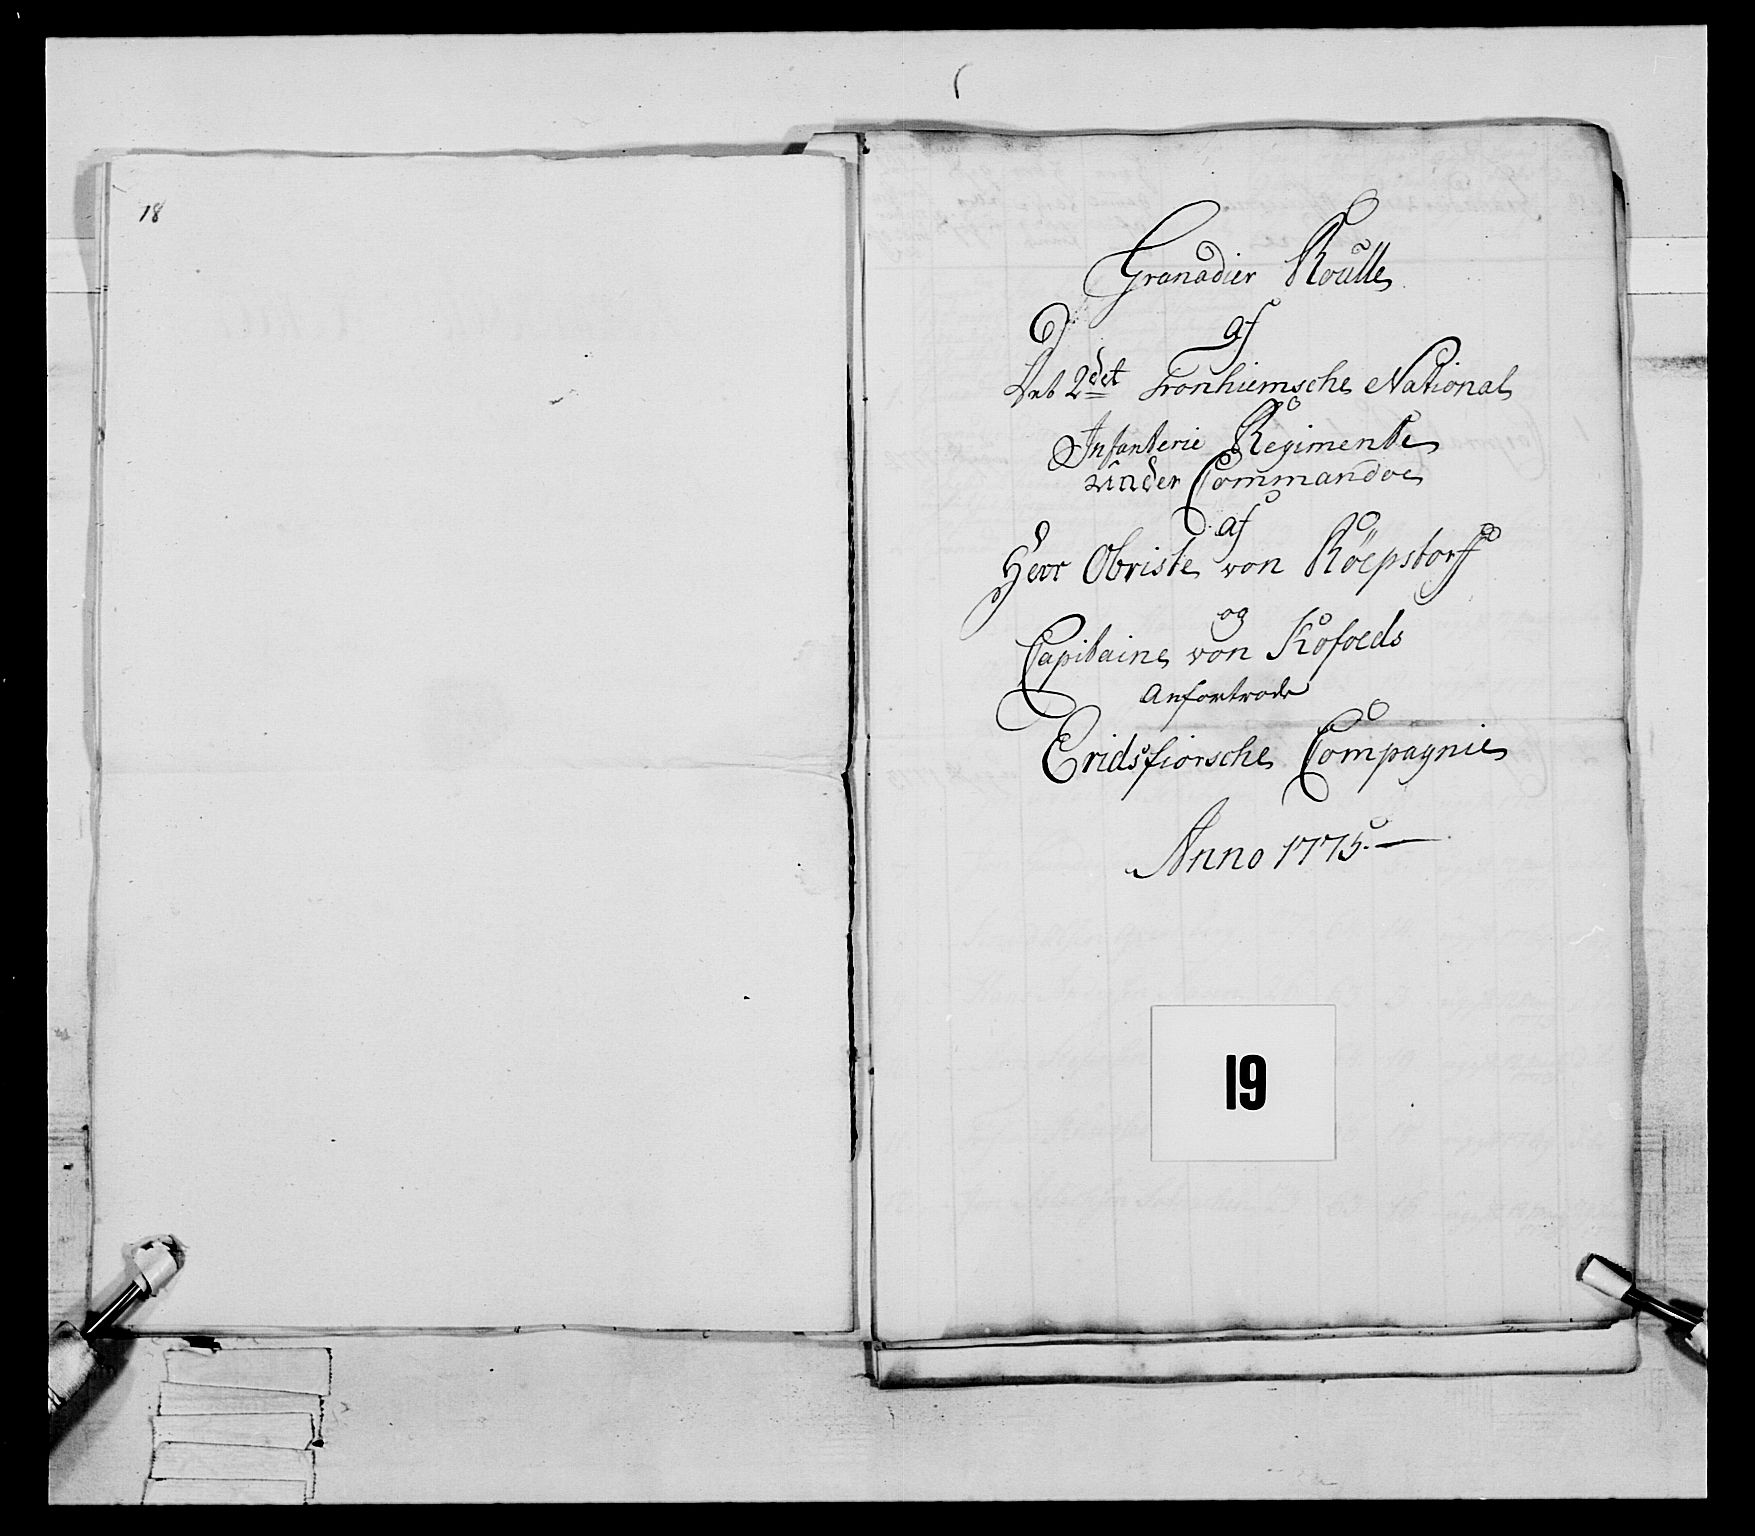 18
Granadier Roulle
af
Det 2det Tronhiemsche National
Infanterie Regimente
under Commandoe
af
Herr Obriste von Röepstorff
og
Capitaine von Kofoeds
Anfortrode
Eridsfiorsche Compagnie
Anno 1775.
19